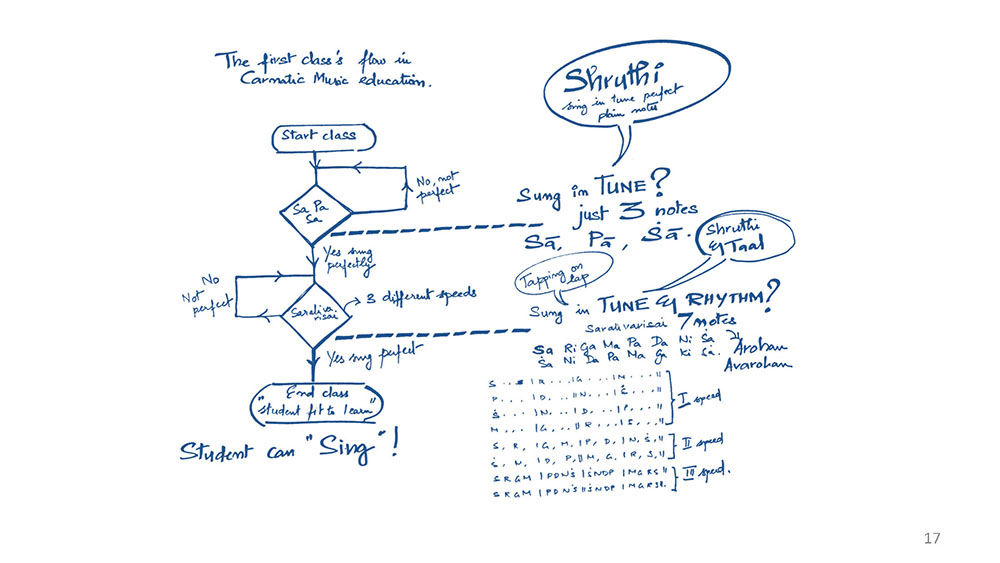 The first class's flow in
Carnatic Music education.
Start class
Sa Pa
Sa
No, not
perfect
Yes sung
perfectly
No
Not
perfect
Saraliva-
risai
3 different speeds
Yes sung perfect
End class
"student fit to learn"
Student can "Sing"!
Shruthi
sing in tune perfect
plain notes
Sung in TUNE?
just 3 notes
Sā, Pā, Ṡā.
Shruthi
& Taal
Tapping on
lap
Sung in TUNE & RHYTHM?
Saralivarisai 7 notes
Sa Ri Ga Ma Pa Da Ni Ṡa
Ṡa Ni Da Pa Ma Ga Ri Sa.
Arohan
Avarohan
P... | D... || N... | Ṡ... ||
Ṡ... | N... | D... | P... ||
M... | G... || R... | S... ||
I speed
S, R, | G, M, | P, D, | N, Ṡ, ||
Ṡ, N, | D, P, || M, G, | R, S, ||
II speed
SRGM | PDNṠ | ṠNDP | MGRS ||
SRGM | PDNṠ || ṠNDP | MGRS ||.
III speed.
17